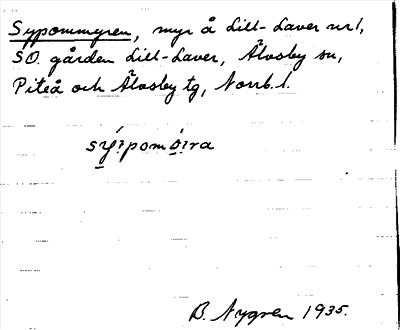 Sypommyren, myr å Lill-Laver nr 1,
SO. gården Lill-Laver, Älvsby sn,
Piteå och Älvsby tg, Norrb. l.
sý̱ꝛpomó̱ꝛra
B. Nygren 1935.